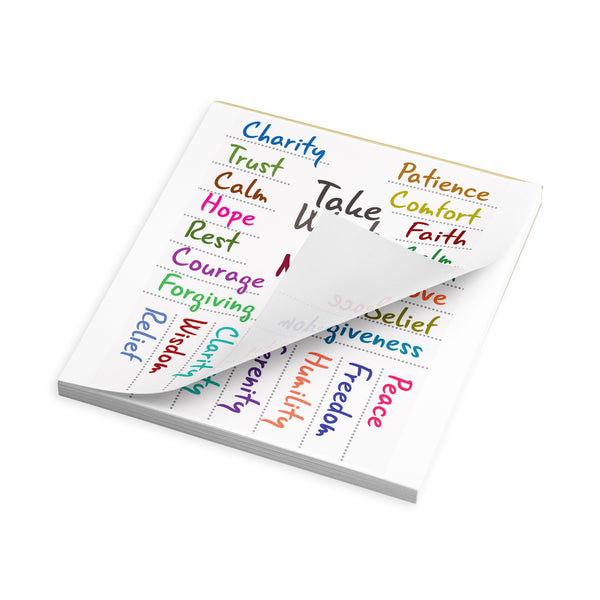 Charity
Trust
Calm
Hope
Rest
Courage
Forgiving
Take
Patience
Comfort
Faith
Calm
Love
Belief
Forgiveness
Relief
Wisdom
Clarity
Serenity
Humility
Freedom
Peace